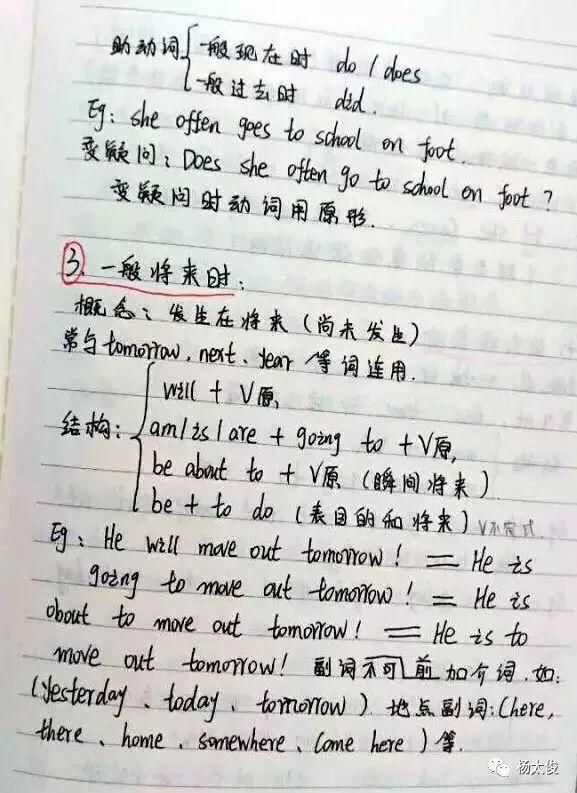 助动词{一般现在时 do / does
一般过去时 did.
Eg: she offen goes to school on foot.
变疑问: Does she often go to school on foot ?
变疑问时动词用原形.
3. 一般将来时:
概念: 发生在将来 (尚未发生)
常与tomorrow、next、year 等词连用.
结构: {will + V原,
am / is / are + going to + V原,
be about to + V原 (瞬间将来)
be + to do (表目的和将来) V不定式.
Eg: He will move out tomorrow! = He is
going to move out tomorrow! = He is
obout to move out tomorrow! = He is to
move out tomorrow! 副词不可前加介词. 如:
(yesterday、today、tomorrow) 地点副词: (here,
there、home、somewhere、come here) 等.
杨太俊